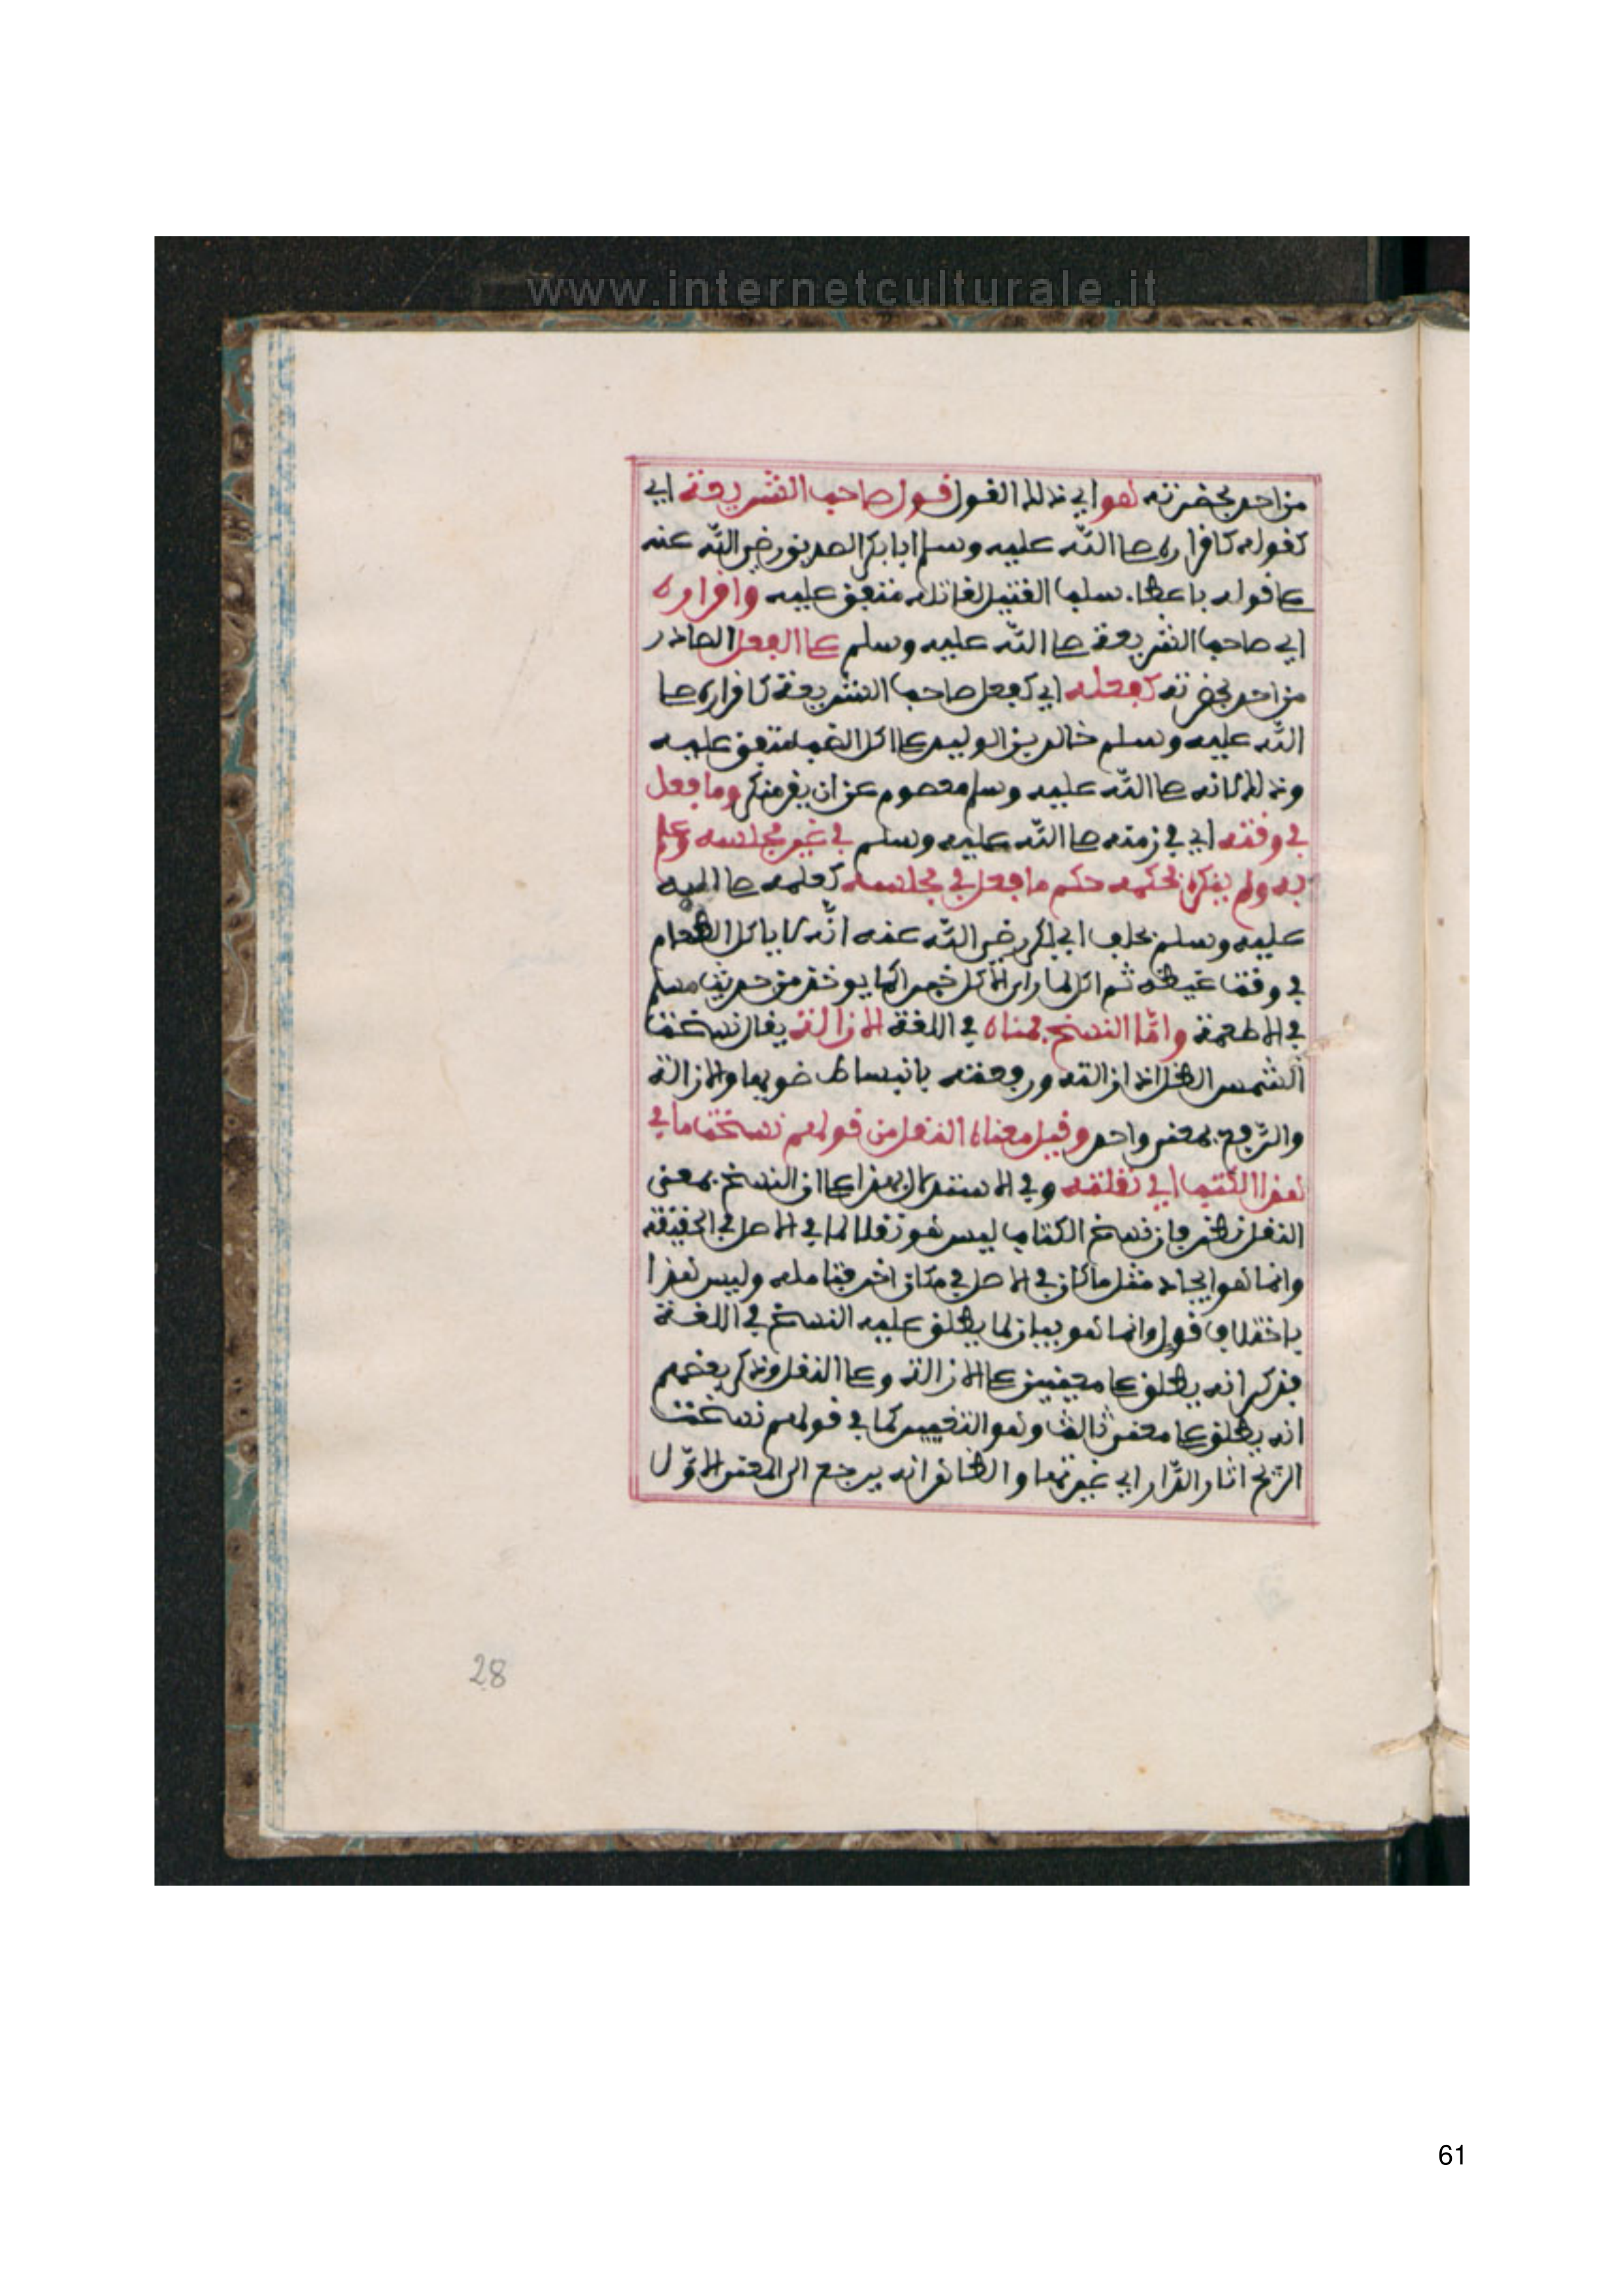 www.internetculturale.it
من احد بحضرته هو اي ذلك القول قول صاحب الشريعة اي
كقوله كاقراره صلى الله عليه وسلم ابا بكر الصديق رضي الله عنه
على قوله باعطاء سلب القتيل لقاتله متفق عليه واقراره
اي صاحب الشريعة صلى الله عليه وسلم على الفعل الصادر
من احد بحضرته كفعله اي كفعل صاحب الشريعة كاقراره صلى
الله عليه وسلم خالد بن الوليد على اكل الضب متفق عليه
وذلك لانه صلى الله عليه وسلم معصوم عن ان يقر منكر وما فعل
في وقته اي في زمنه صلى الله عليه وسلم في غير مجلسه وعلم
به ولم ينكره فحكمه حكم ما فعل في مجلسه كعلمه صلى الله
عليه وسلم بحلف ابي بكر رضي الله عنه انه لا ياكل الطعام
في وقت غيظه ثم اكل لما راى الاكل خيرا كما يوخذ من حديث مسلم
في الاطعمة واما النسخ فمعناه في اللغة الازالة يقال نسخت
الشمس الظل اذا ازالته ورفعته بانبساط ضويها والازالة
والرفع بمعنى واحد وقيل معناه النقل من قولهم نسخت ما في
هذا الكتب اي نقلته وفي الاستدلال بهذا على ان النسخ بمعنى
النقل نظر فان نسخ الكتاب ليس هو نقلا لما في الاصل في الحقيقة
وانما هو ايجاد مثل ما كان في الاصل في مكان اخر فتامله وليس هذا
باختلاف قول وانما هو بيان لما يطلق عليه النسخ في اللغة
فذكر انه يطلق على معنيين على الازالة وعلى النقل وذكر بعضهم
انه يطلق على معنى ثالث وهو التغيير كما في قولهم نسخت
الريح اثار الدار اي غيرتها والظاهر انه يرجع الى المعنى الاول
28
61